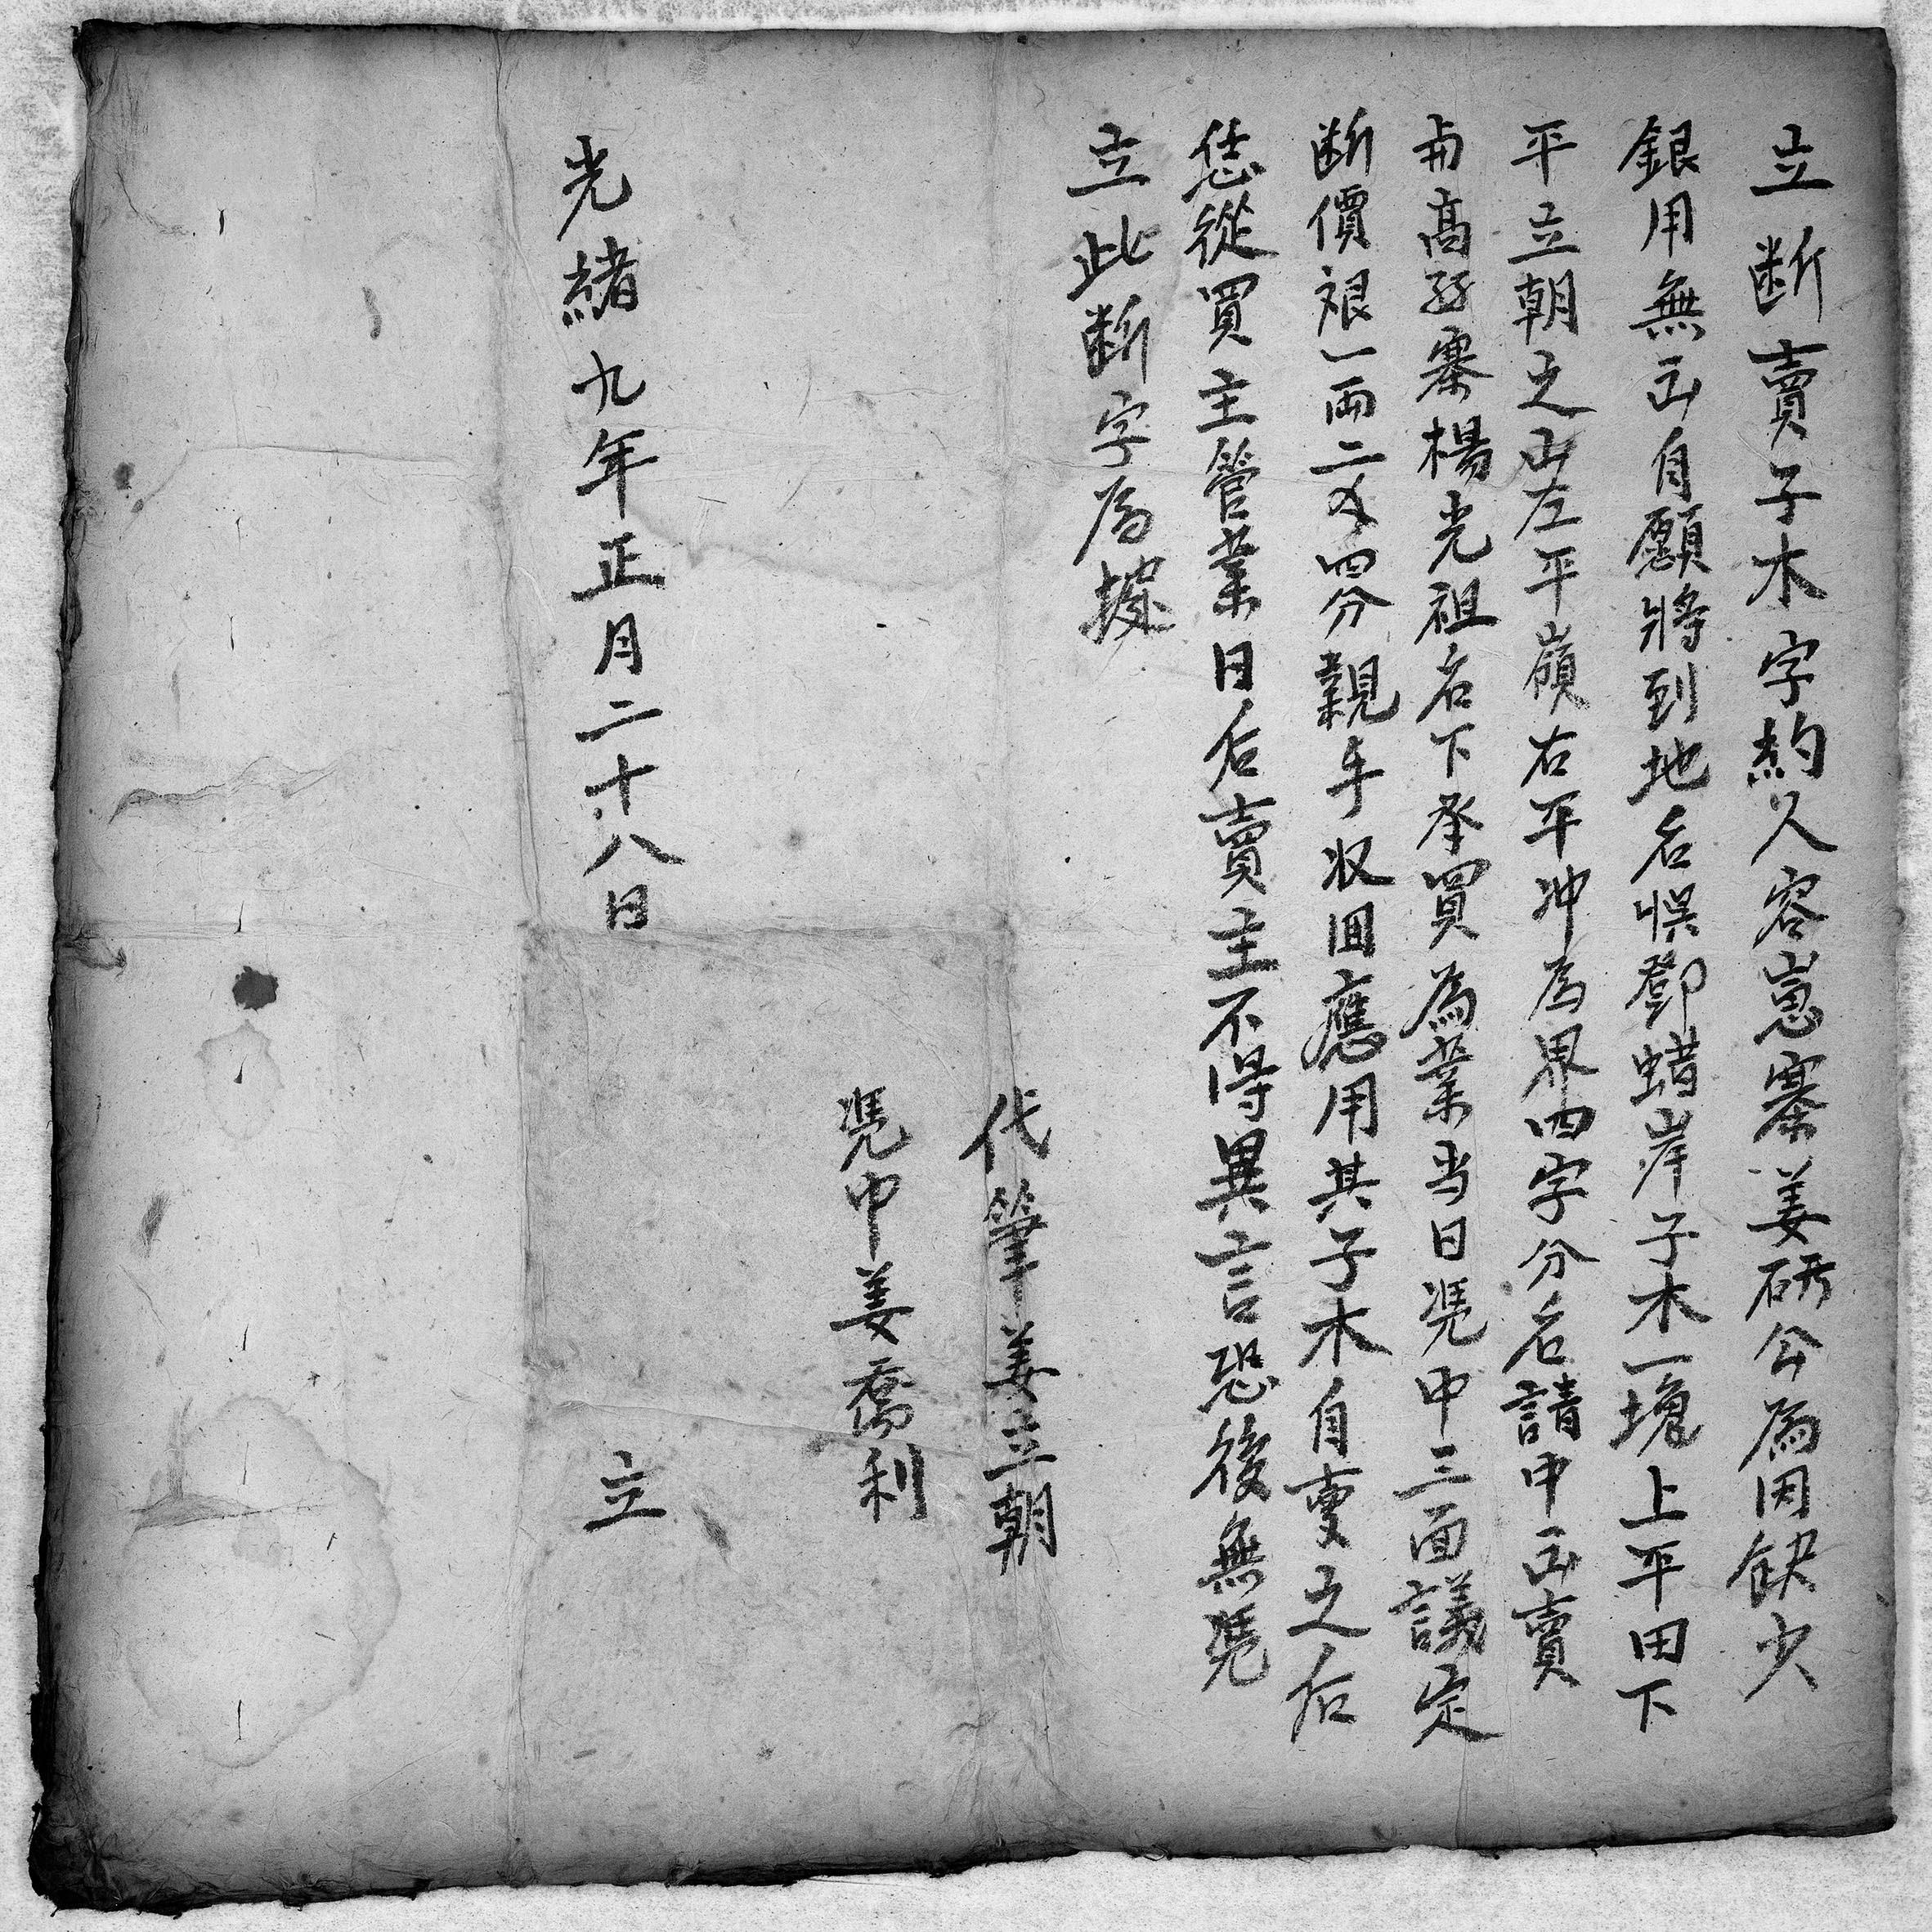 立断賣子木字約人容嵩寨姜研公為因缺少
銀用無出自願將到地名悮鄧蜡岸子木一塊上平田下
平立朝之山左平嶺右平冲為界四字分名請中出賣
与高寨楊光祖名下承買為業当日凴中三面議定
断價艮一両二錢四分親手收回應用其子木自賣之后
恁從買主管業日后賣主不得異言恐後無凴
立此断字為據
代筆姜立朝
凴中姜喬利
光緒九年正月二十八日 立